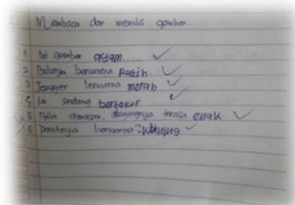 Membaca dan menulis gambar.
1 Ini gambar ayam....
2 Bulunya berwarna Putih.
3 Jengger berwarna merah
4 Ia sedang berkokok
5 Bila dimasak, dagingnya terasa enak
6 Paruhnya berwarna kuning